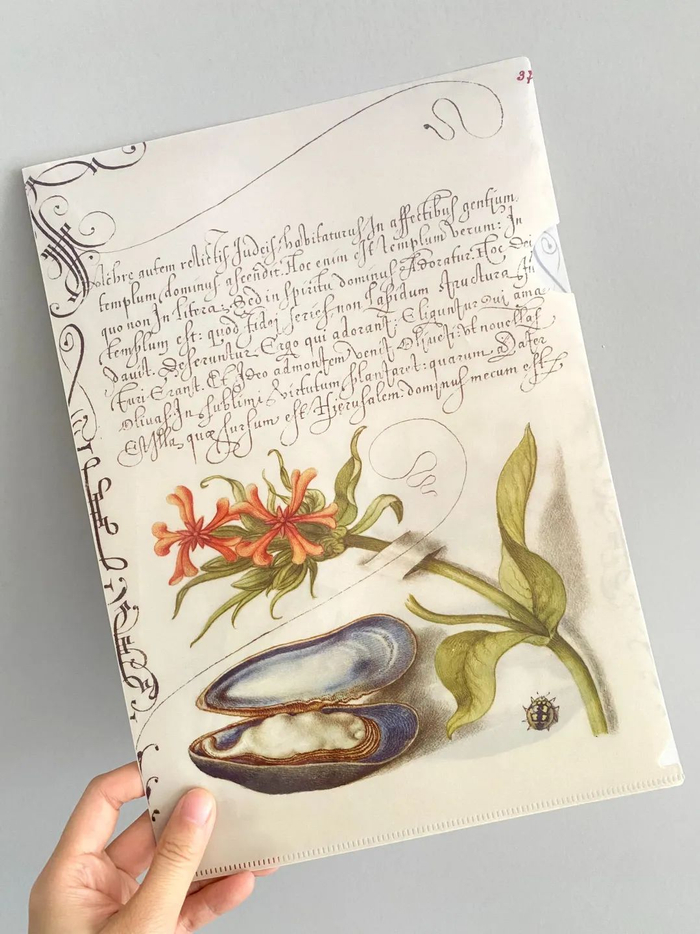 37
autem relictis Judeis: habitaturus In affectibus gentium
templum dominus ascendit. Hoc enim est templum verum: In
quo non In litera: Sed in spiritu dominus Adoratur. Hoc dei
templum est: quod fidei series non lapidum structura
davit. Deseruntur Ergo qui adorant: Eliguntur qui ama
turi Erant. Et Ideo admontem venit Oliueti: vt nouellas
Olivas In sublimi virtutum plantaret: quarum Mater
Est Illa, quæ sursum est Hierusalem: dominus mecum est